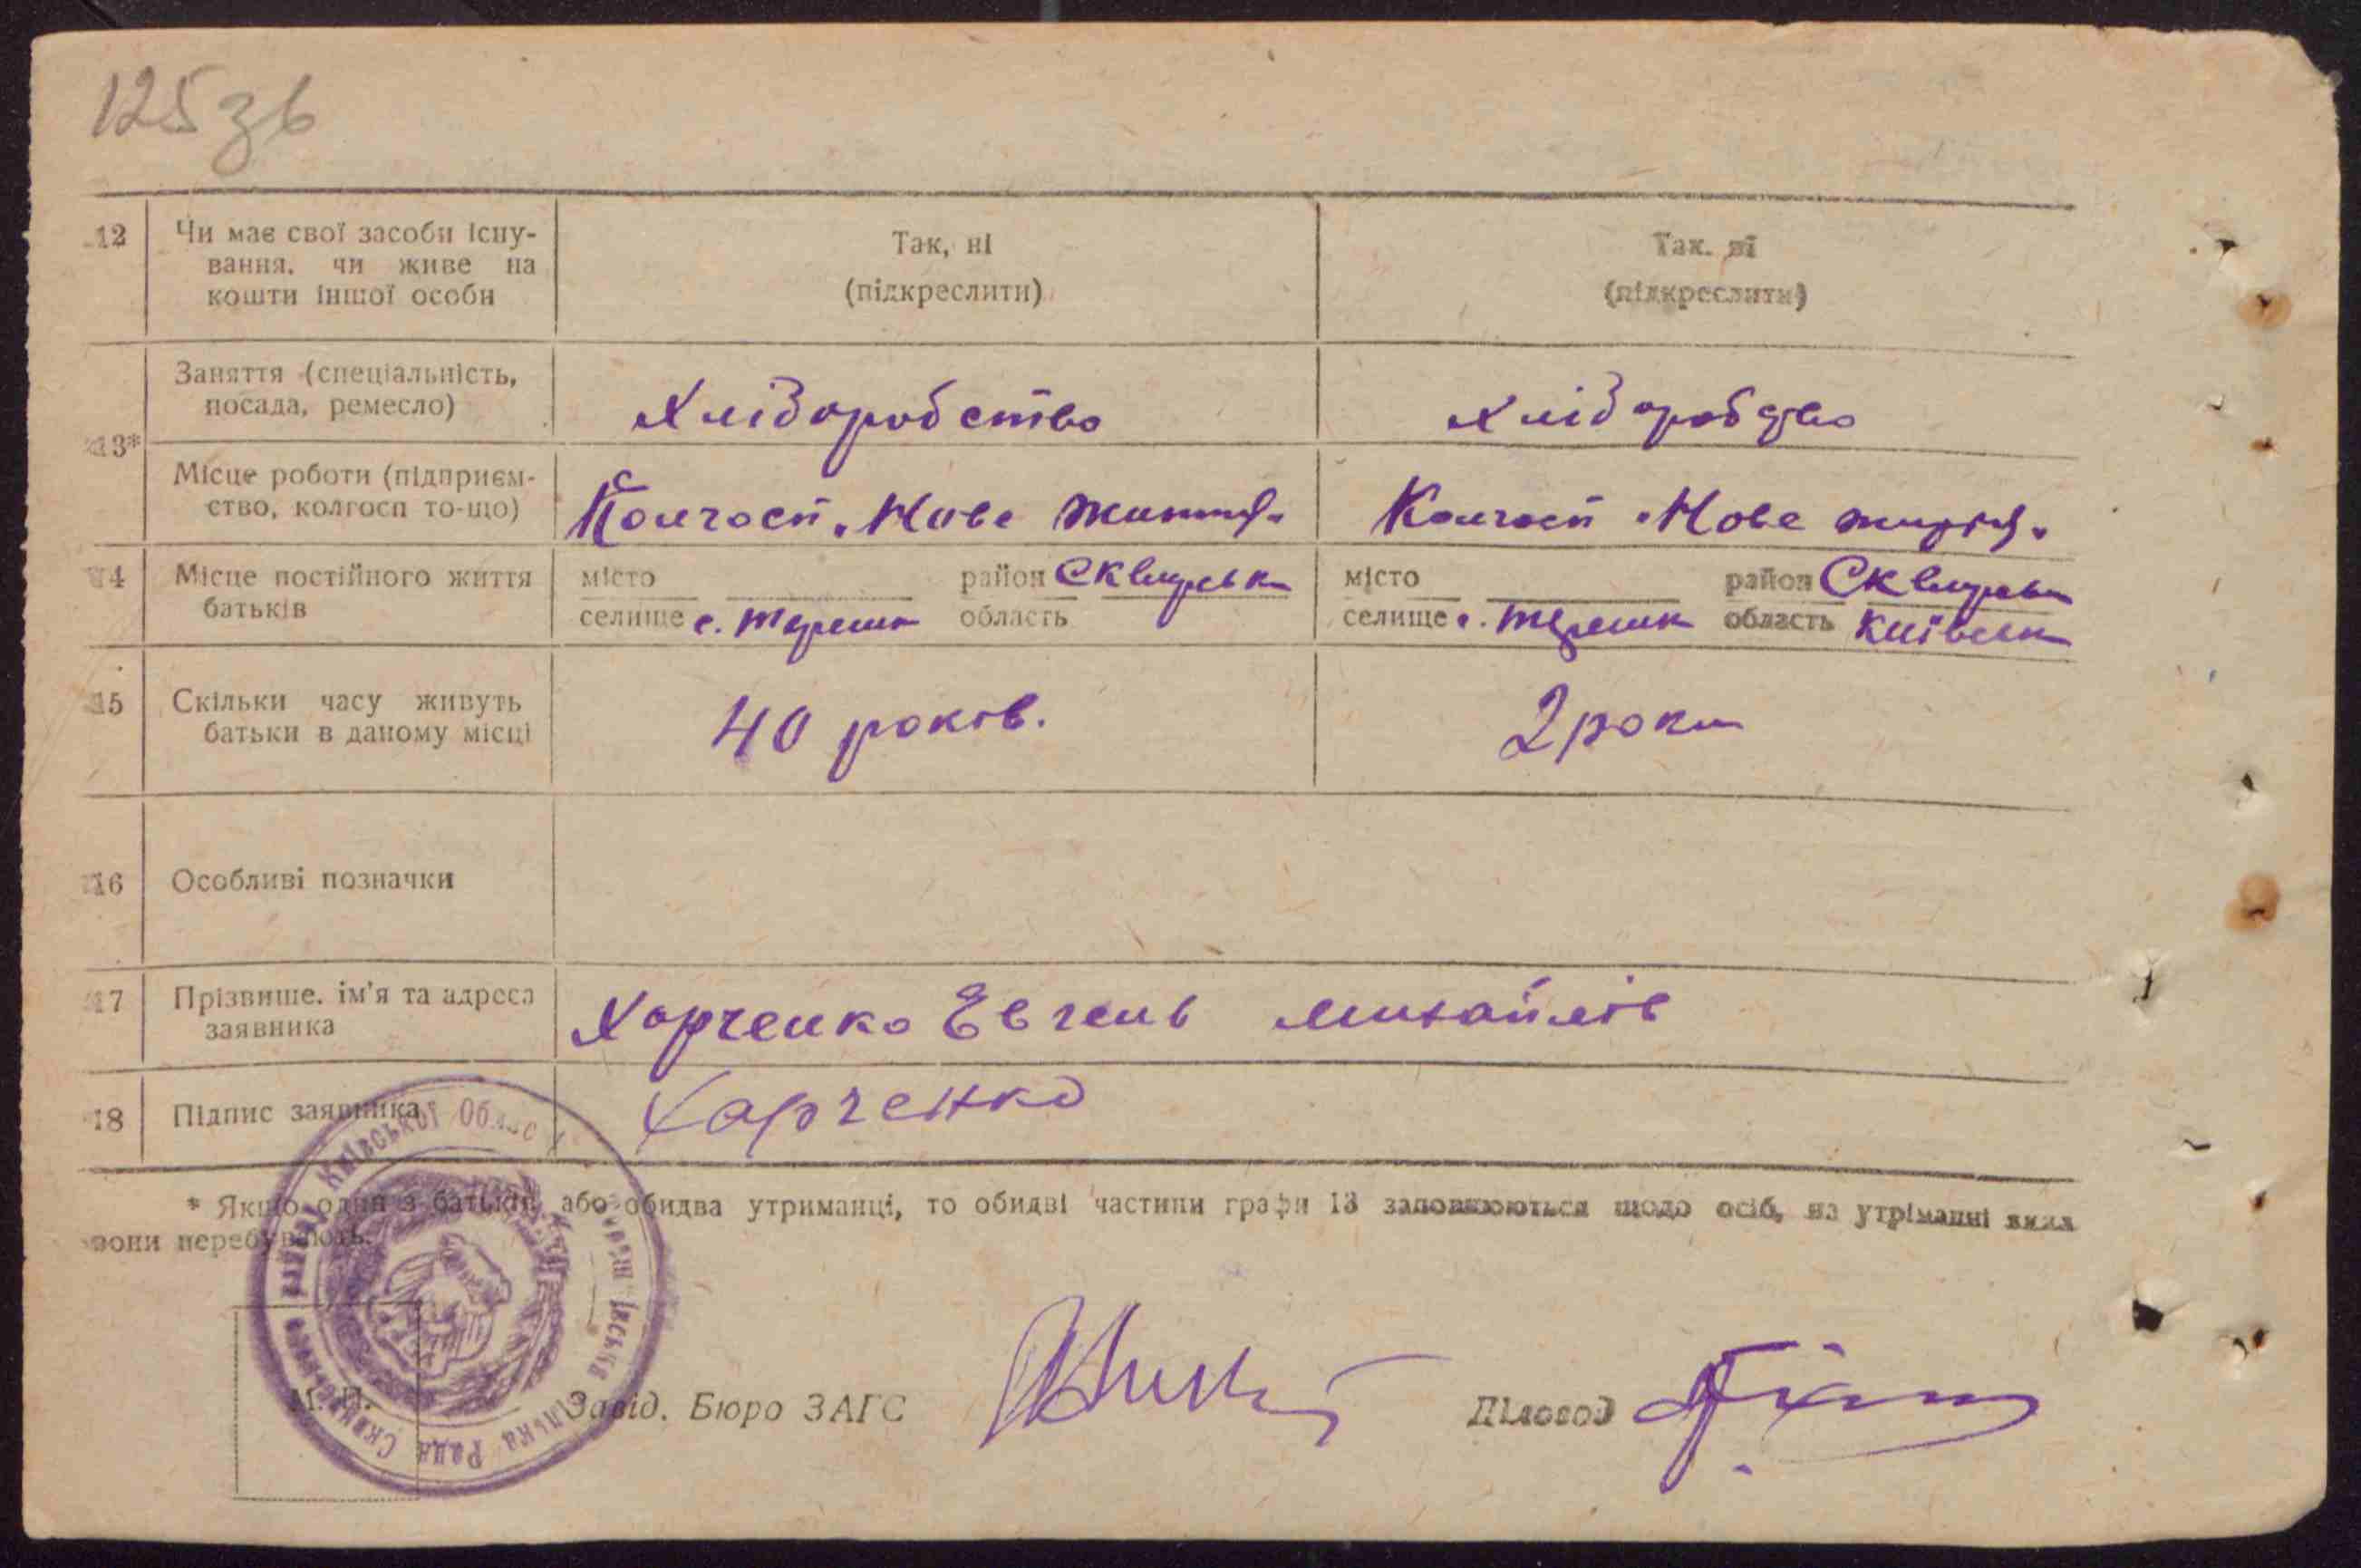 125 зв
12 Чи має свої засоби існу-
вання. чи живе на
кошти іншої особи
Так, ні
(підкреслити)
Так. ні
(підкреслити)
13*
Заняття (спеціальність,
посада, ремесло)
Хліборобство
Хліборобство
Місце роботи (підприєм-
ство, колгосп то-що)
Колгосп „Нове життя"
Колгосп „Нове життя"
14 Місце постійного життя
батьків
місто район Сквирськ
селище с. область
місто район Сквирськ
селище с. область Київськ
15 Скільки часу живуть
батьки в даному місці
40 років.
2 роки
16 Особливі позначки
17 Прізвище. ім'я та адреса
заявника
Харченко Евгень Михайлів
18 Підпис заявника
Харченко
* Якщо один з батьків, або обидва утриманці, то обидві частини графи 13 заповнюються щодо осіб, на утріманні яких
вони перебувають.
Київської Област
Рада
М. П.
Завід. Бюро ЗАГС
Діловод